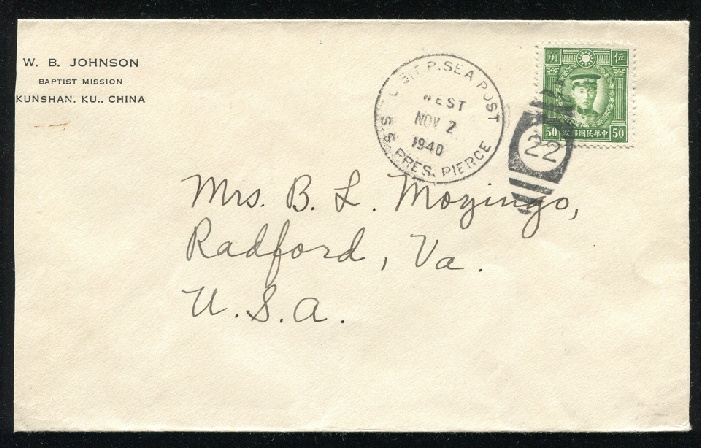 W. B. JOHNSON
BAPTIST MISSION
KUNSHAN, KU., CHINA
U.S.T.P. SEA POST
WEST
NOV 2
1940
S.S. PRES. PIERCE
22
50 中華民國郵政 50
Mrs. B. L. Mozingo,
Radford, Va.
U.S.A.